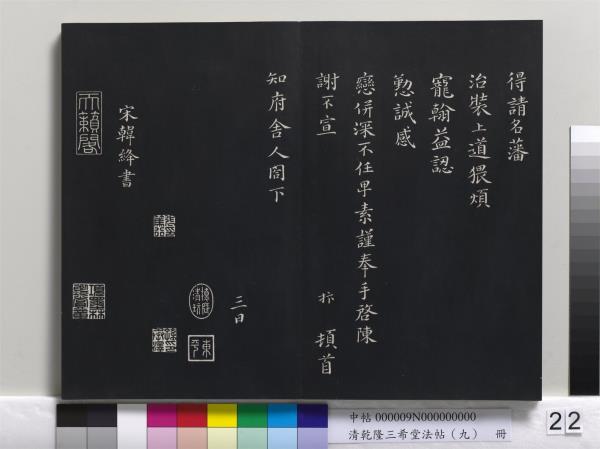 得請名藩
治裝上道猥煩
寵翰益認
懃誠感
戀併深不任卑素謹奉手啓陳
謝不宣 抃 頓首
三日
知府舍人閤下
宋韓絳書
天籟閣
東平
申帖 000009N000000000
清乾隆三希堂法帖（九） 冊
22